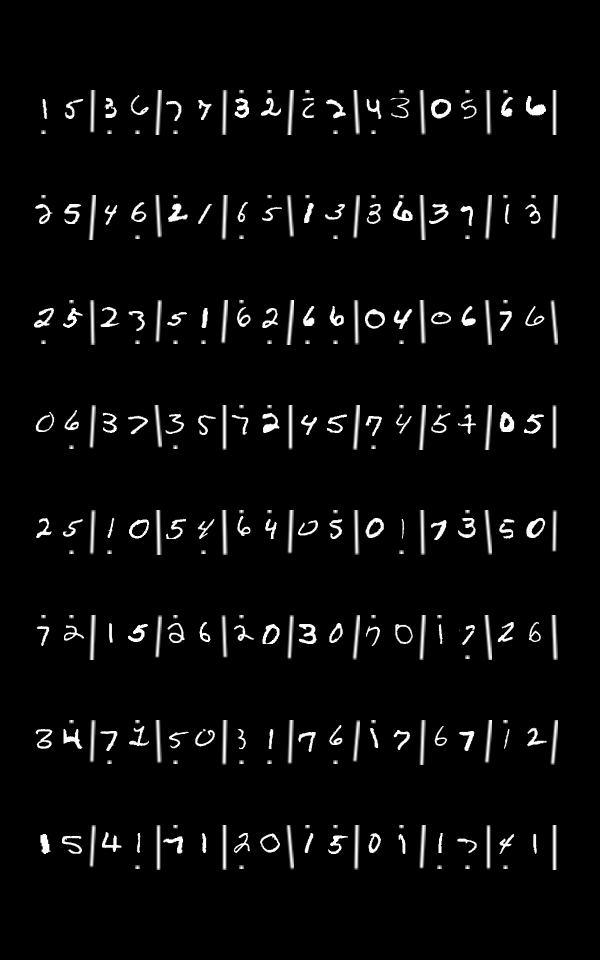 1 5 | 3 6 | 7 7 | 3 2 | 2 2 | 4 3 | 0 5 | 6 6 |
2 5 | 4 6 | 2 1 | 6 5 | 1 3 | 3 6 | 3 7 | 1 3 |
2 5 | 2 3 | 5 1 | 6 2 | 6 6 | 0 4 | 0 6 | 7 6 |
0 6 | 3 7 | 3 5 | 7 2 | 4 5 | 7 4 | 5 7 | 0 5 |
2 5 | 1 0 | 5 4 | 6 4 | 0 5 | 0 1 | 7 3 | 5 0 |
7 2 | 1 5 | 2 6 | 2 0 | 3 0 | 7 0 | 1 7 | 2 6 |
3 4 | 7 1 | 5 0 | 3 1 | 7 6 | 1 7 | 6 7 | 1 2 |
1 5 | 4 1 | 7 1 | 2 0 | 1 5 | 0 1 | 1 7 | 4 1 |